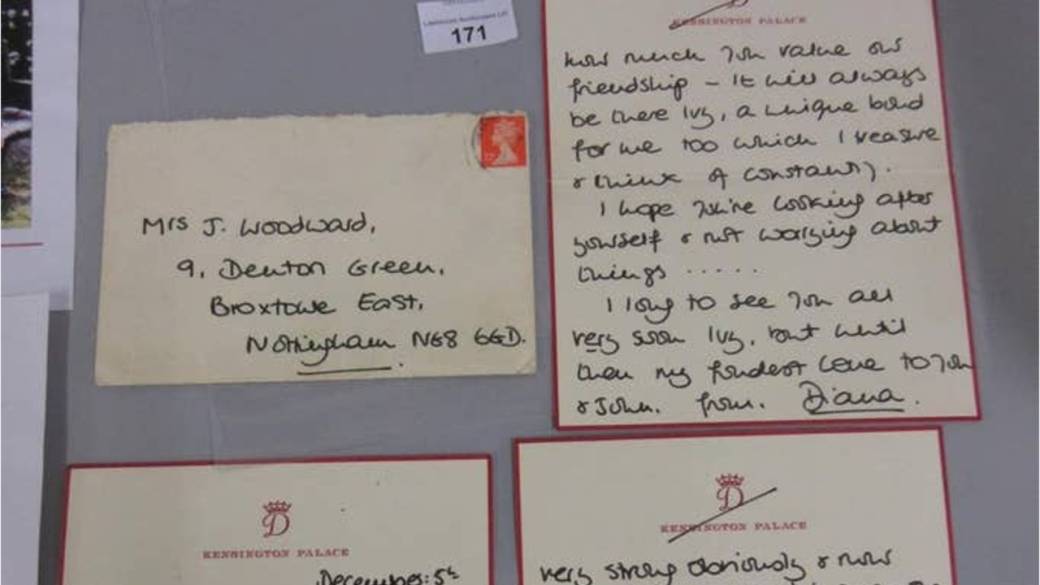 171
Mrs J. Woodward,
9, Denton Green,
Broxtowe East,
Nottingham NG8 6GD.
D
KENSINGTON PALACE
how much you value our
friendship – it will always
be there Ivy, a unique bond
for me too which I treasure
& think of constantly.
I hope you're looking after
yourself & not worrying about
things .....
I long to see you all
very soon Ivy, but until
then my fondest love to you
& John. from. Diana.
D
KENSINGTON PALACE
December: 5th
D
KENSINGTON PALACE
very strong obviously & now